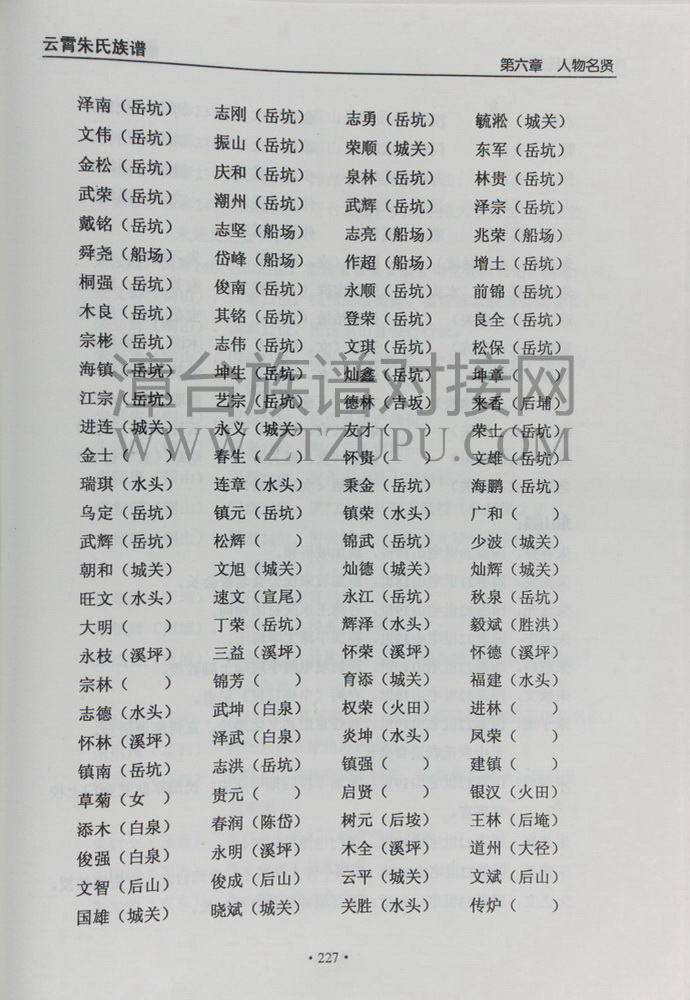 云霄朱氏族谱
第六章 人物名贤
泽南（岳坑） 志刚（岳坑） 志勇（岳坑） 毓淞（城关）
文伟（岳坑） 振山（岳坑） 荣顺（城关） 东军（岳坑）
金松（岳坑） 庆和（岳坑） 泉林（岳坑） 林贵（岳坑）
武荣（岳坑） 潮州（岳坑） 武辉（岳坑） 泽宗（岳坑）
戴铭（岳坑） 志坚（船场） 志亮（船场） 兆荣（船场）
舜尧（船场） 岱峰（船场） 作超（船场） 增土（岳坑）
桐强（岳坑） 俊南（岳坑） 永顺（岳坑） 前锦（岳坑）
木良（岳坑） 其铭（岳坑） 登荣（岳坑） 良全（岳坑）
宗彬（岳坑） 志伟（岳坑） 文琪（岳坑） 松保（岳坑）
海镇（岳坑） 坤生（岳坑） 灿鑫（岳坑） 坤章（ ）
江宗（岳坑） 艺宗（岳坑） 德林（吉坂） 来香（后埔）
进连（城关） 永义（城关） 友才（ ） 荣士（岳坑）
金士（ ） 春生（ ） 怀贵（ ） 文雄（岳坑）
瑞琪（水头） 连章（水头） 秉金（岳坑） 海鹏（岳坑）
乌定（岳坑） 镇元（岳坑） 镇荣（水头） 广和（ ）
武辉（岳坑） 松辉（ ） 锦武（岳坑） 少波（城关）
朝和（城关） 文旭（城关） 灿德（城关） 灿辉（城关）
旺文（水头） 速文（宣尾） 永江（岳坑） 秋泉（岳坑）
大明（ ） 丁荣（岳坑） 辉泽（水头） 毅斌（胜洪）
永枝（溪坪） 三益（溪坪） 怀荣（溪坪） 怀德（溪坪）
宗林（ ） 锦芳（ ） 育添（城关） 福建（水头）
志德（水头） 武坤（白泉） 权荣（火田） 进林（ ）
怀林（溪坪） 泽武（白泉） 炎坤（水头） 凤荣（ ）
镇南（岳坑） 志洪（岳坑） 镇强（ ） 建镇（ ）
草菊（女 ） 贵元（ ） 启贤（ ） 银汉（火田）
添木（白泉） 春润（陈岱） 树元（后埃） 王林（后埯）
俊强（白泉） 永明（溪坪） 木全（溪坪） 道州（大径）
文智（后山） 俊成（后山） 云平（城关） 文斌（后山）
国雄（城关） 晓斌（城关） 关胜（水头） 传炉（ ）
漳台族谱对接网
WWW.ZTZUPU.COM
·227·